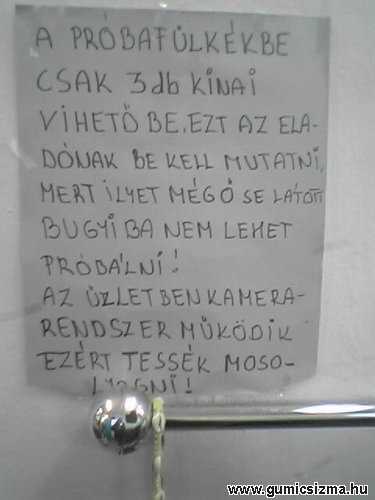 A PRÓBAFÜLKÉKBE
CSAK 3db KÍNAI
VIHETŐ BE, EZT AZ ELA-
DÓNAK BE KELL MUTATNI,
MERT ILYET MÉG Ő SE LÁTOTT
BUGYIBA NEM LEHET
PRÓBÁLNI!
AZ ÜZLETBEN KAMERA-
RENDSZER MŰKÖDIK
EZÉRT TESSÉK MOSO-
LYOGNI!
www.gumicsizma.hu